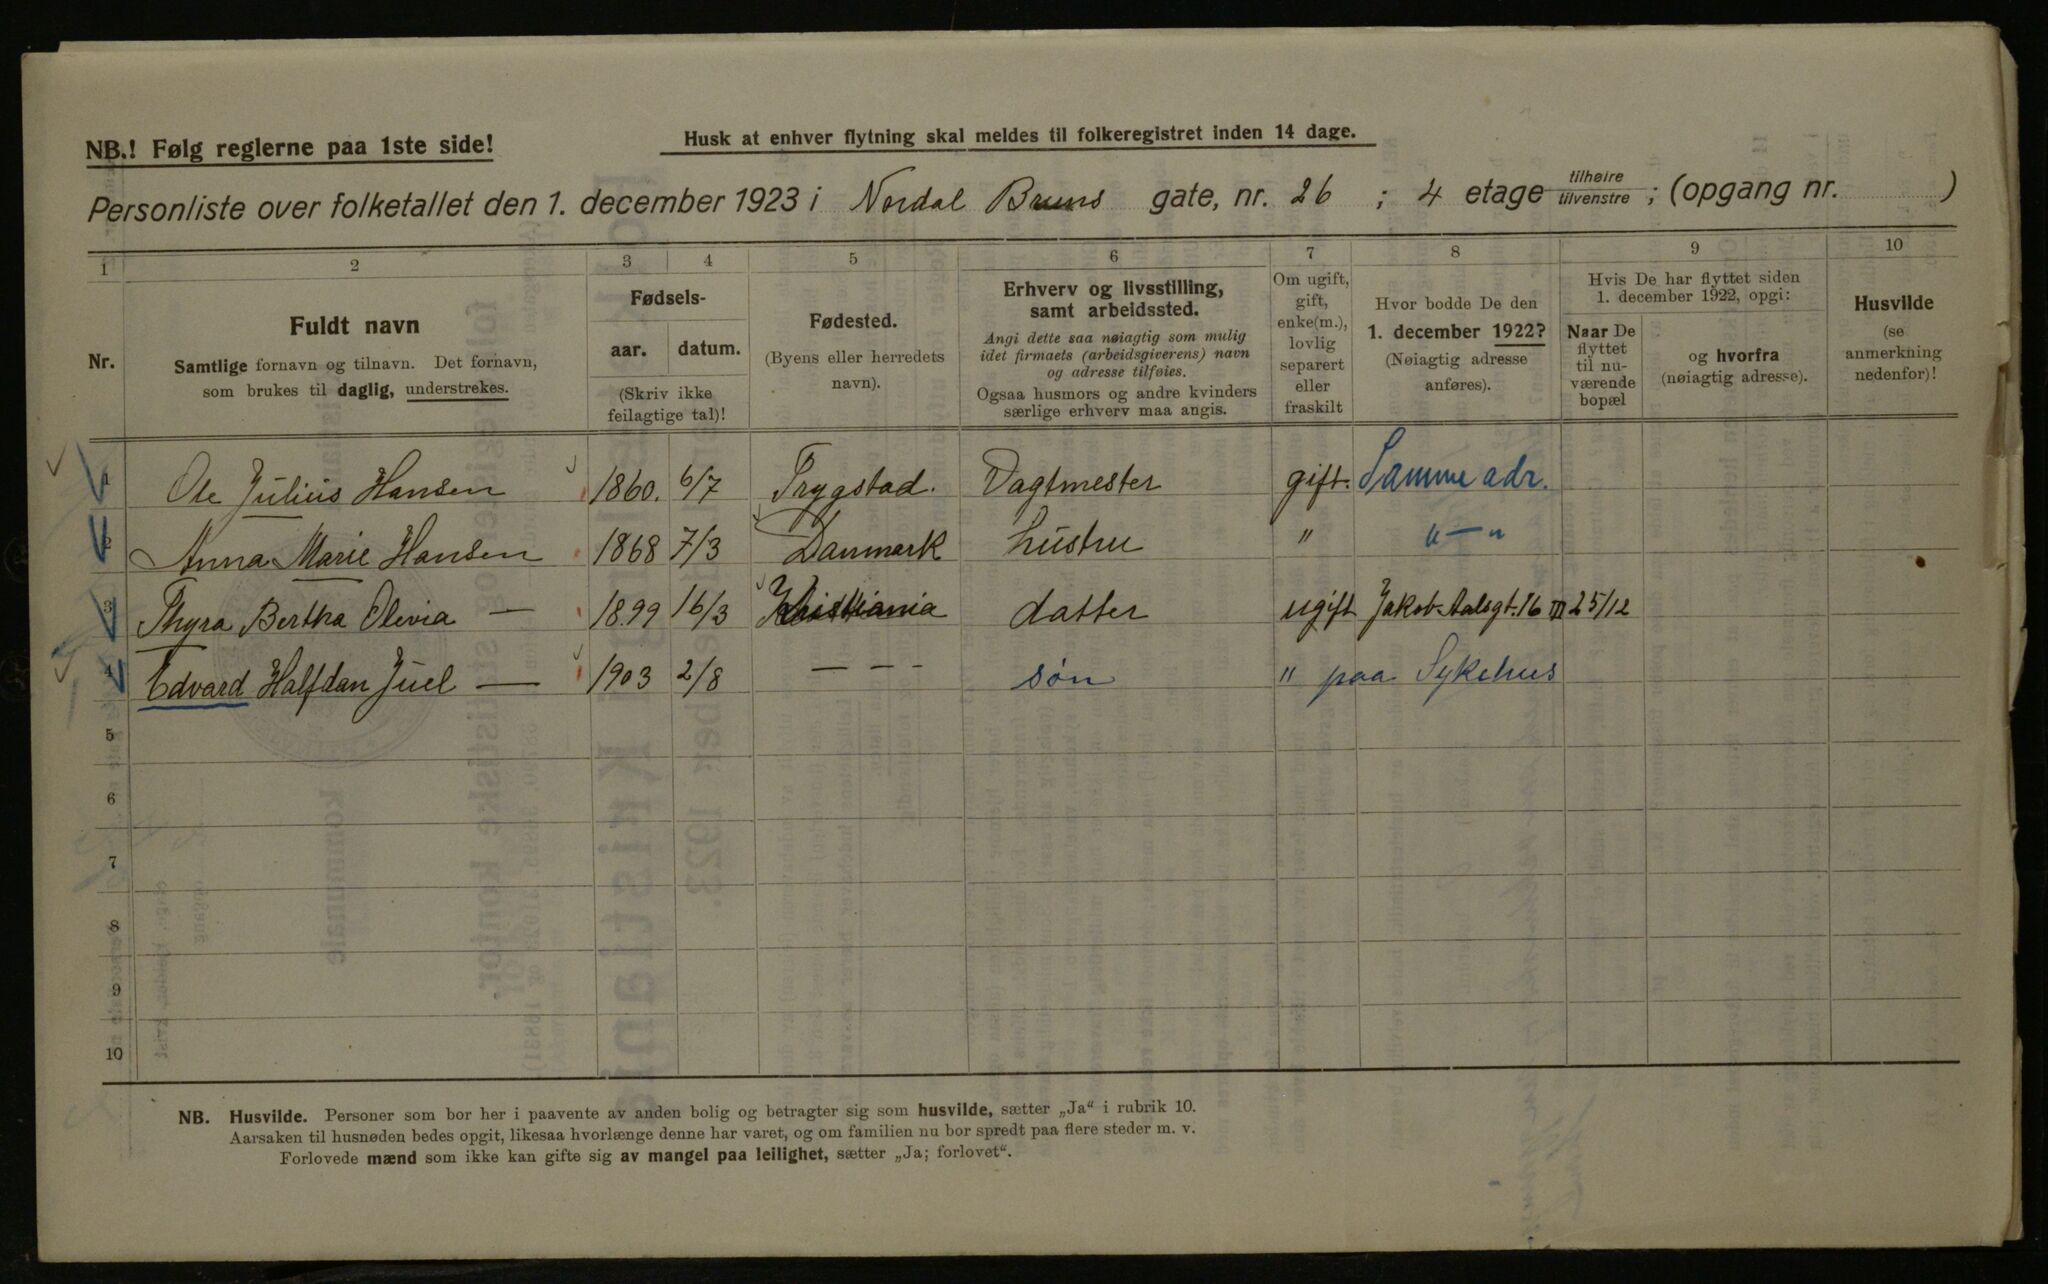 NB.! Følg reglerne paa 1ste side!
Husk at enhver flytning skal meldes til folkeregistret inden 14 dage.
Personliste over folketallet den 1. december 1923 i Nordal Bruns gate, nr. 26 ; 4 etage tilhøire tilvenstre ; (opgang nr. )
1 2 3 4 5 6 7 8 9 10
Nr.
Fuldt navn
Samtlige fornavn og tilnavn. Det fornavn,
som brukes til daglig, understrekes.
Fødsels-
aar. datum.
(Skriv ikke
feilagtige tal)!
Fødested.
(Byens eller herredets
navn).
Erhverv og livsstilling,
samt arbeidssted.
Angi dette saa nøiagtig som mulig
idet firmaets (arbeidsgiverens) navn
og adresse tilføies.
Ogsaa husmors og andre kvinders
særlige erhverv maa angis.
Om ugift,
gift,
enke(m.),
lovlig
separert
eller
fraskilt
Hvor bodde De den
1. december 1922?
(Nøiagtig adresse
anføres).
Hvis De har flyttet siden
1. december 1922, opgi:
Naar De
flyttet
til nu-
værende
bopæl
og hvorfra
(nøiagtig adresse).
Husvilde
(se
anmerkning
nedenfor)!
1 Ole Julius Hansen 1860. 6/7 Trygstad. Vagtmester gift. Samme adr.
2 Anna Marie Hansen 1868 7/3 Danmark hustru " " — "
3 Thyra Bertha Olevia — 1899 16/3 Kristiania datter ugift Jakob Aalsgt. 16 III 25/12
4 Edvard Halfdan Juel — 1903 2/8 — - - søn " paa Sykehus
5
6
7
8
9
10
NB. Husvilde. Personer som bor her i paavente av anden bolig og betragter sig som husvilde, sætter „Ja“ i rubrik 10.
Aarsaken til husnøden bedes opgit, likesaa hvorlænge denne har varet, og om familien nu bor spredt paa flere steder m. v.
Forlovede mænd som ikke kan gifte sig av mangel paa leilighet, sætter „Ja; forlovet“.